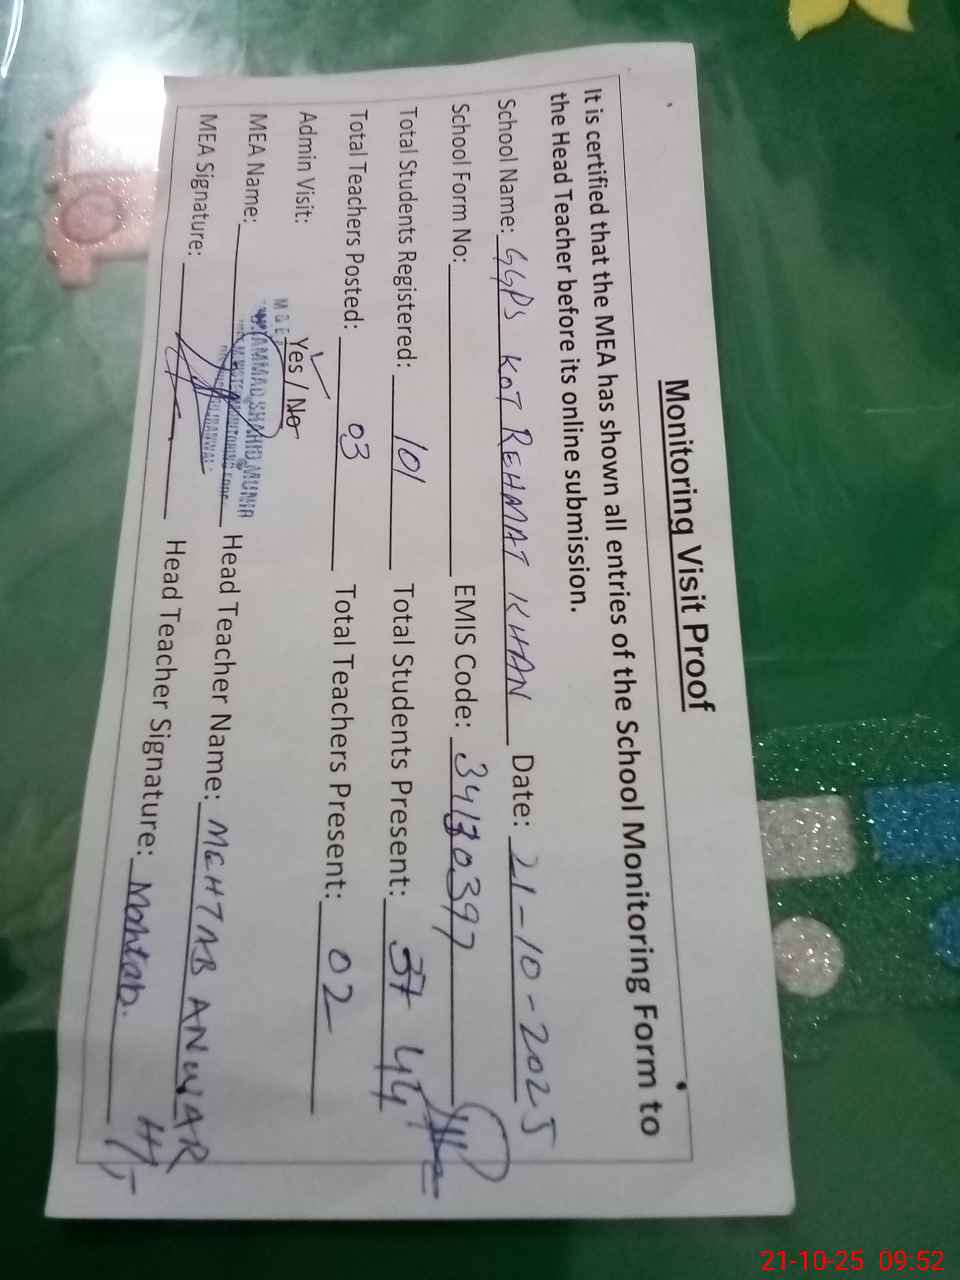 Monitoring Visit Proof
It is certified that the MEA has shown all entries of the School Monitoring Form to
the Head Teacher before its online submission.
School Name: GGPS KOT REHMAT KHAN Date: 21-10-2025
School Form No: EMIS Code: 34130397
Total Students Registered: 101 Total Students Present: 37 44
Total Teachers Posted: 03 Total Teachers Present: 02
Admin Visit: Yes / No
MEA Name: MUHAMMAD SHAHID MUNIR Head Teacher Name: MEHTAB ANWAR
MEA Signature: Head Teacher Signature: Mehtab. HT
21-10-25 09:52